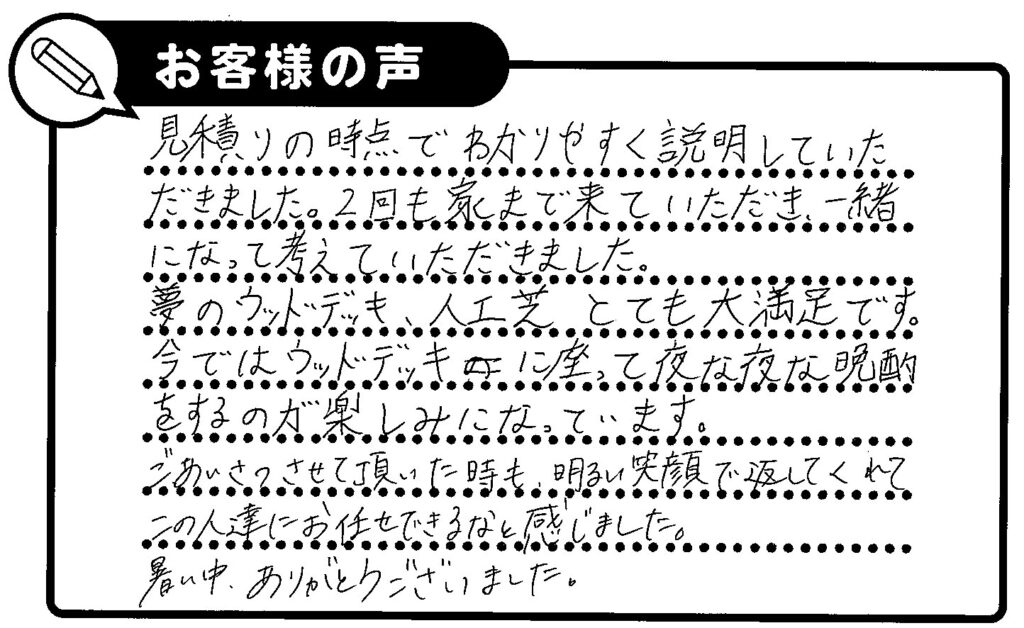 お客様の声
見積りの時点でわかりやすく説明していた
だきました。2回も家まで来ていただき、一緒
になって考えていただきました。
夢のウッドデッキ、人工芝 とても大満足です。
今ではウッドデッキに座って夜な夜な晩酌
をするのが楽しみになっています。
ごあいさつさせて頂いた時も、明るい笑顔で返してくれて
この人達にお任せできるなと感じました。
暑い中、ありがとうございました。